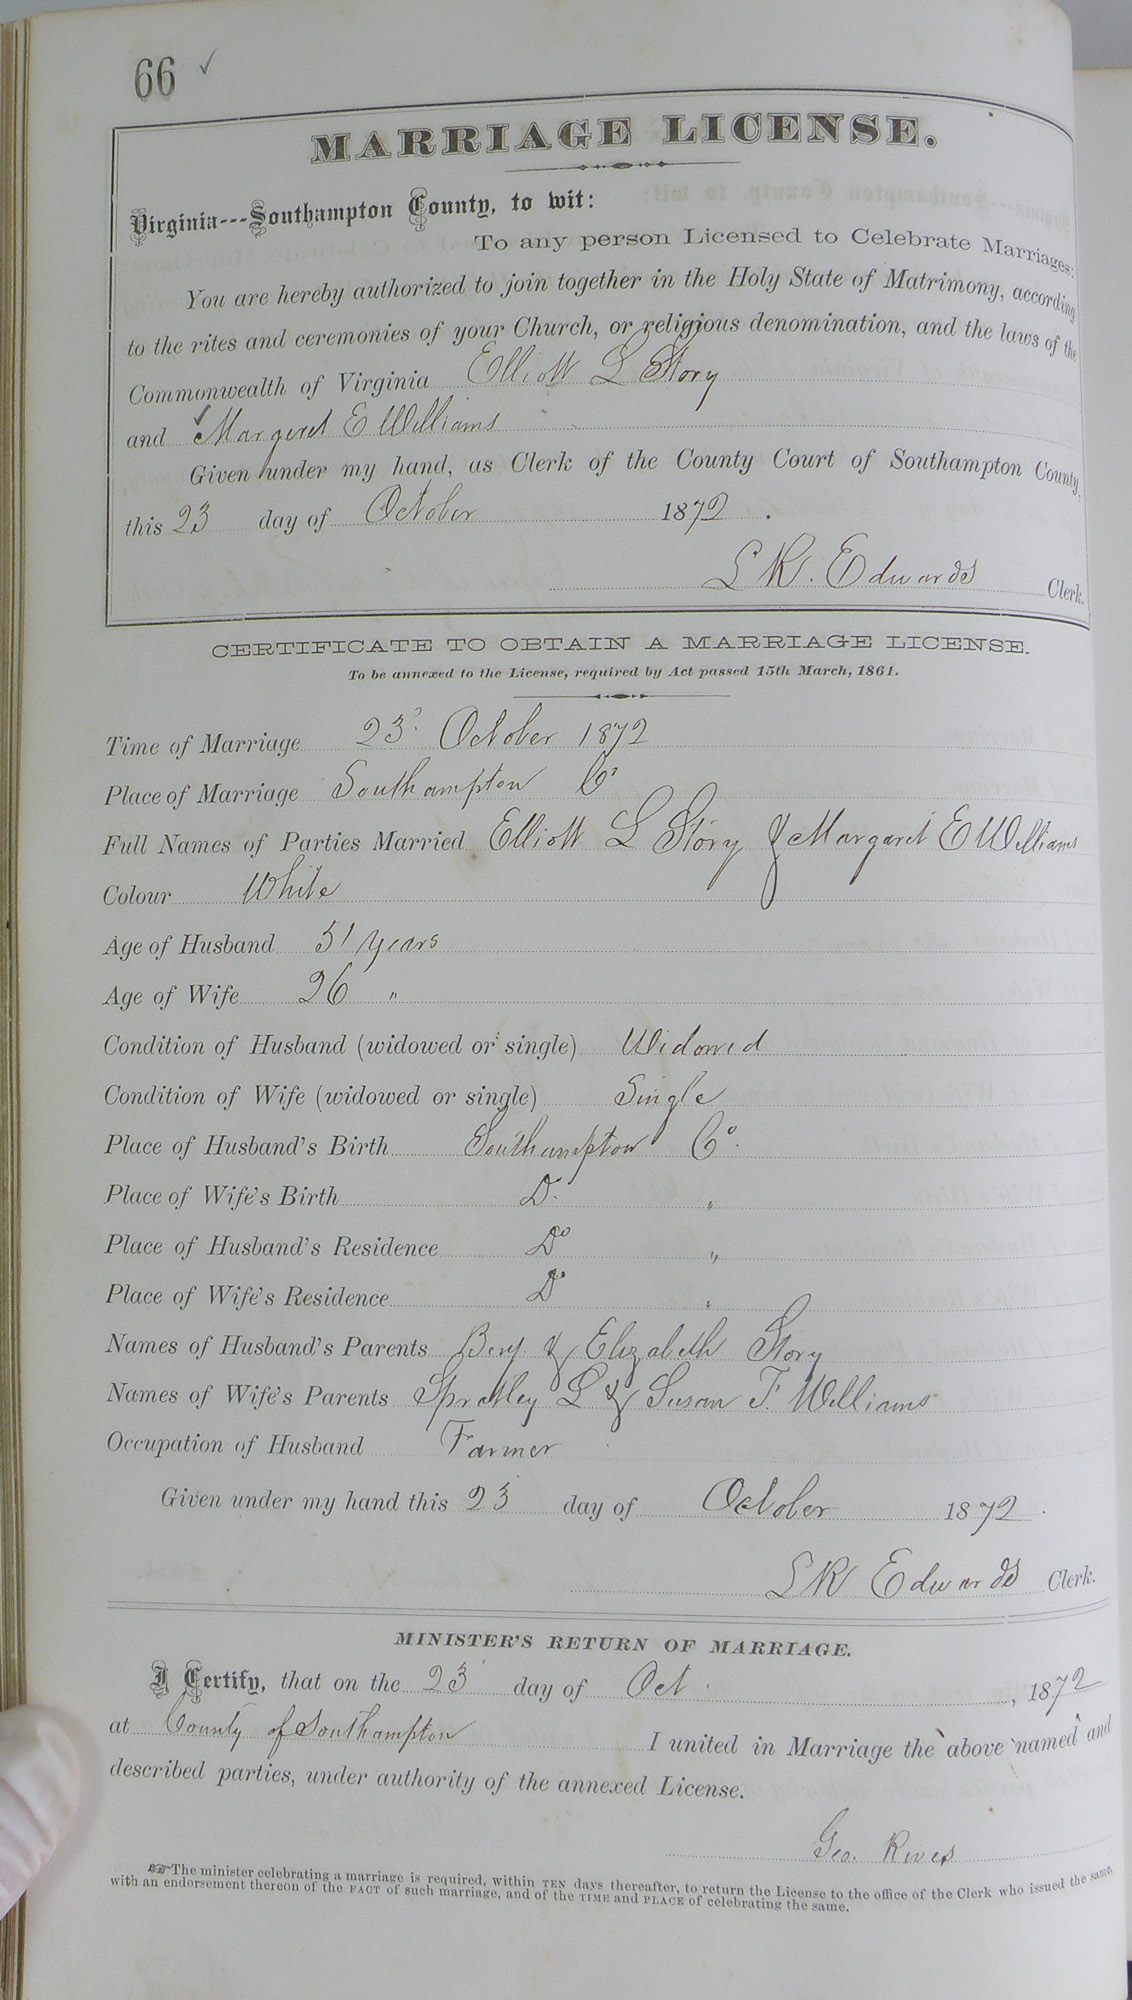 66 ✓
MARRIAGE LICENSE.
Virginia---Southampton County, to wit:
To any person Licensed to Celebrate Marriages:
You are hereby authorized to join together in the Holy State of Matrimony, according
to the rites and ceremonies of your Church, or religious denomination, and the laws of the
Commonwealth of Virginia Elliott L Story
and Margaret E Williams
Given under my hand, as Clerk of the County Court of Southampton County,
this 23 day of October 1872.
L R. Edwards Clerk.
CERTIFICATE TO OBTAIN A MARRIAGE LICENSE.
To be annexed to the License, required by Act passed 15th March, 1861.
Time of Marriage 23 October 1872
Place of Marriage Southampton Co
Full Names of Parties Married Elliott L Story & Margaret E Williams
Colour White
Age of Husband 51 years
Age of Wife 26 "
Condition of Husband (widowed or single) Widowed
Condition of Wife (widowed or single) Single
Place of Husband's Birth Southampton Co.
Place of Wife's Birth Do "
Place of Husband's Residence Do "
Place of Wife's Residence Do "
Names of Husband's Parents Benj & Elizabeth Story
Names of Wife's Parents Spratley L & Susan F. Williams
Occupation of Husband Farmer
Given under my hand this 23 day of October 1872.
L R Edwards Clerk.
MINISTER'S RETURN OF MARRIAGE.
I Certify, that on the 23 day of Oct. , 1872
at County of Southampton I united in Marriage the above named and
described parties, under authority of the annexed License.
Geo. Rives
☞The minister celebrating a marriage is required, within TEN days thereafter, to return the License to the office of the Clerk who issued the same,
with an endorsement thereon of the FACT of such marriage, and of the TIME and PLACE of celebrating the same.